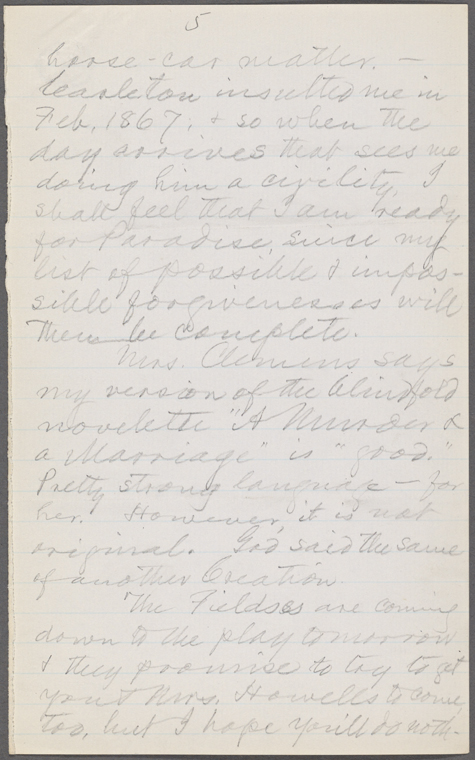 5
horse-car matter. —
Carleton insulted me in
Feb, 1867; & so when the
day arrives that sees me
doing him a civility, I
shall feel that I am ready
for Paradise, since my
list of possible & impos-
sible forgivenesses will
then be complete.
Mrs. Clemens says
my version of the blindfold
novelette "A Murder &
a Marriage" is "good."
Pretty strong language — for
her. However, it is not
original. God said the same
of another Creation.
The Fieldses are coming
down to the play tomorrow
& they promise to try to get
you & Mrs. Howells to come
too, but I hope you'll do noth-